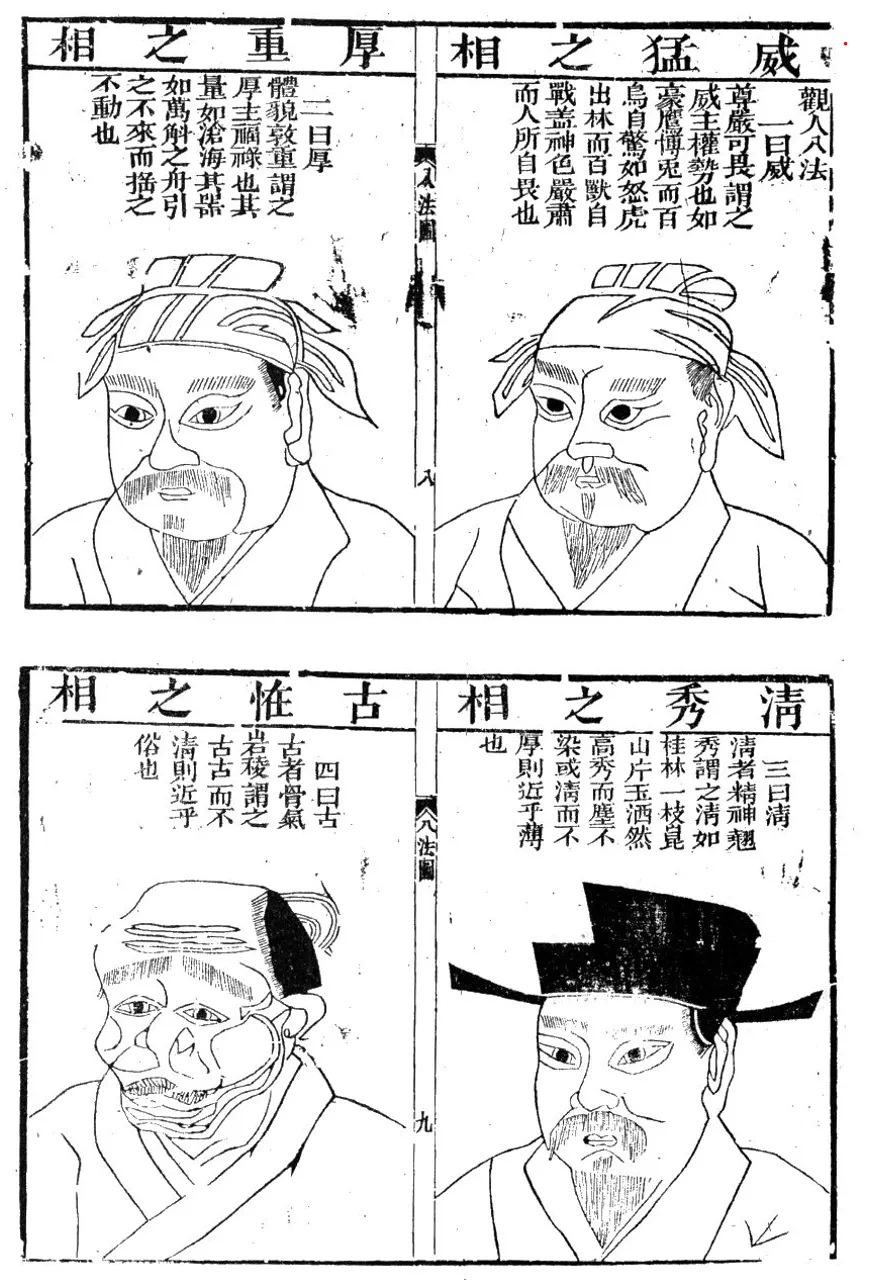 威猛之相
觀人八法
一曰威
尊嚴可畏謂之
威主權勢也如
豪鷹博兎而百
鳥自驚如怒虎
出林而百獸自
戰盖神色嚴肅
而人所自畏也
八法圖
八
厚重之相
二曰厚
體貌敦重謂之
厚主福祿也其
量如滄海其器
如萬斛之舟引
之不來而搖之
不動也
清秀之相
三曰清
清者精神翹
秀謂之清如
桂林一枝崑
山片玉洒然
高秀而塵不
染或清而不
厚則近乎薄
也
八法圖
九
古恠之相
四曰古
古者骨氣
岩稜謂之
古古而不
清則近乎
俗也